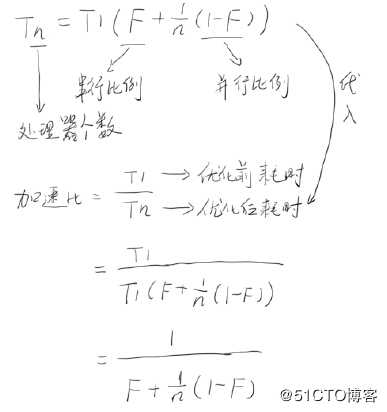 Tn = T1 ( F + 1/n (1-F) )
串行比例 并行比例 代入
处理器个数
加速比 = T1 / Tn → 优化前耗时 → 优化后耗时
= T1 / T1(F + 1/n (1-F))
= 1 / F + 1/n (1-F)
@51CTO博客